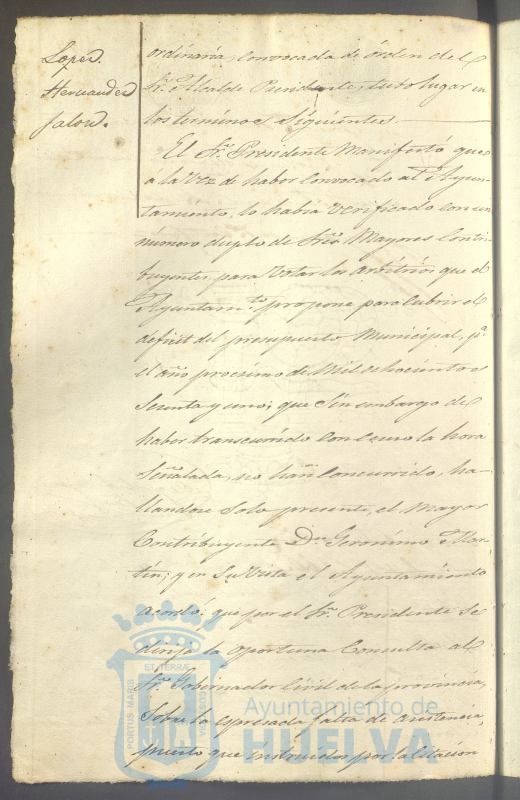 Lopez.
Hernandez
Jalon.
ordinaria, convocada de órden del
Sr. Alcalde Presidente, tubo lugar en
los terminos siguientes
El Sr. Presidente Manifestó que
á la Vez de haber convocado al Ayun-
tamiento, lo habia Verificado con un
número duplo de Sres. Mayores Contri-
buyentes, para Votar los arbitrios que el
Ayuntamto. propone para Cubrir el
deficit del presupuesto Municipal, pa.
el año procsimo de Mil ochocientos
Sesenta y uno; que Sin embargo de
haber transcurrido con la hora
Señalada, no han Concurrido, ha-
llandose Solo presente, el Mayor
Contribuyente Dn. Geronimo Mar-
tin; y en Su Vista el Ayuntamiento
acordó: que por el Sr. Presidente Se
dirija la oportuna Consulta al
Sr. Gobernador Civil de la provincia,
Sobre la espresada falta de asistencia,
puesto que instruidos por la Citacion
PORTUS MARIS
ET TERRÆ
CUSTODIA
Ayuntamiento de
HUELVA